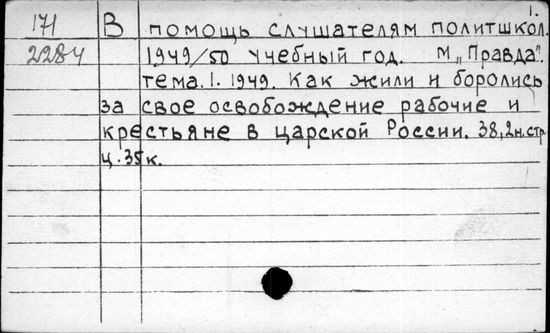 1.
171 В помощь слушателям политшкол.
2284 1949/50 учебный год. М „Правда".
тема.1. 1949. Как жили и боролись
за свое освобождение рабочие и
крестьяне в царской России. 38,2н.стр.
ц. 35к.